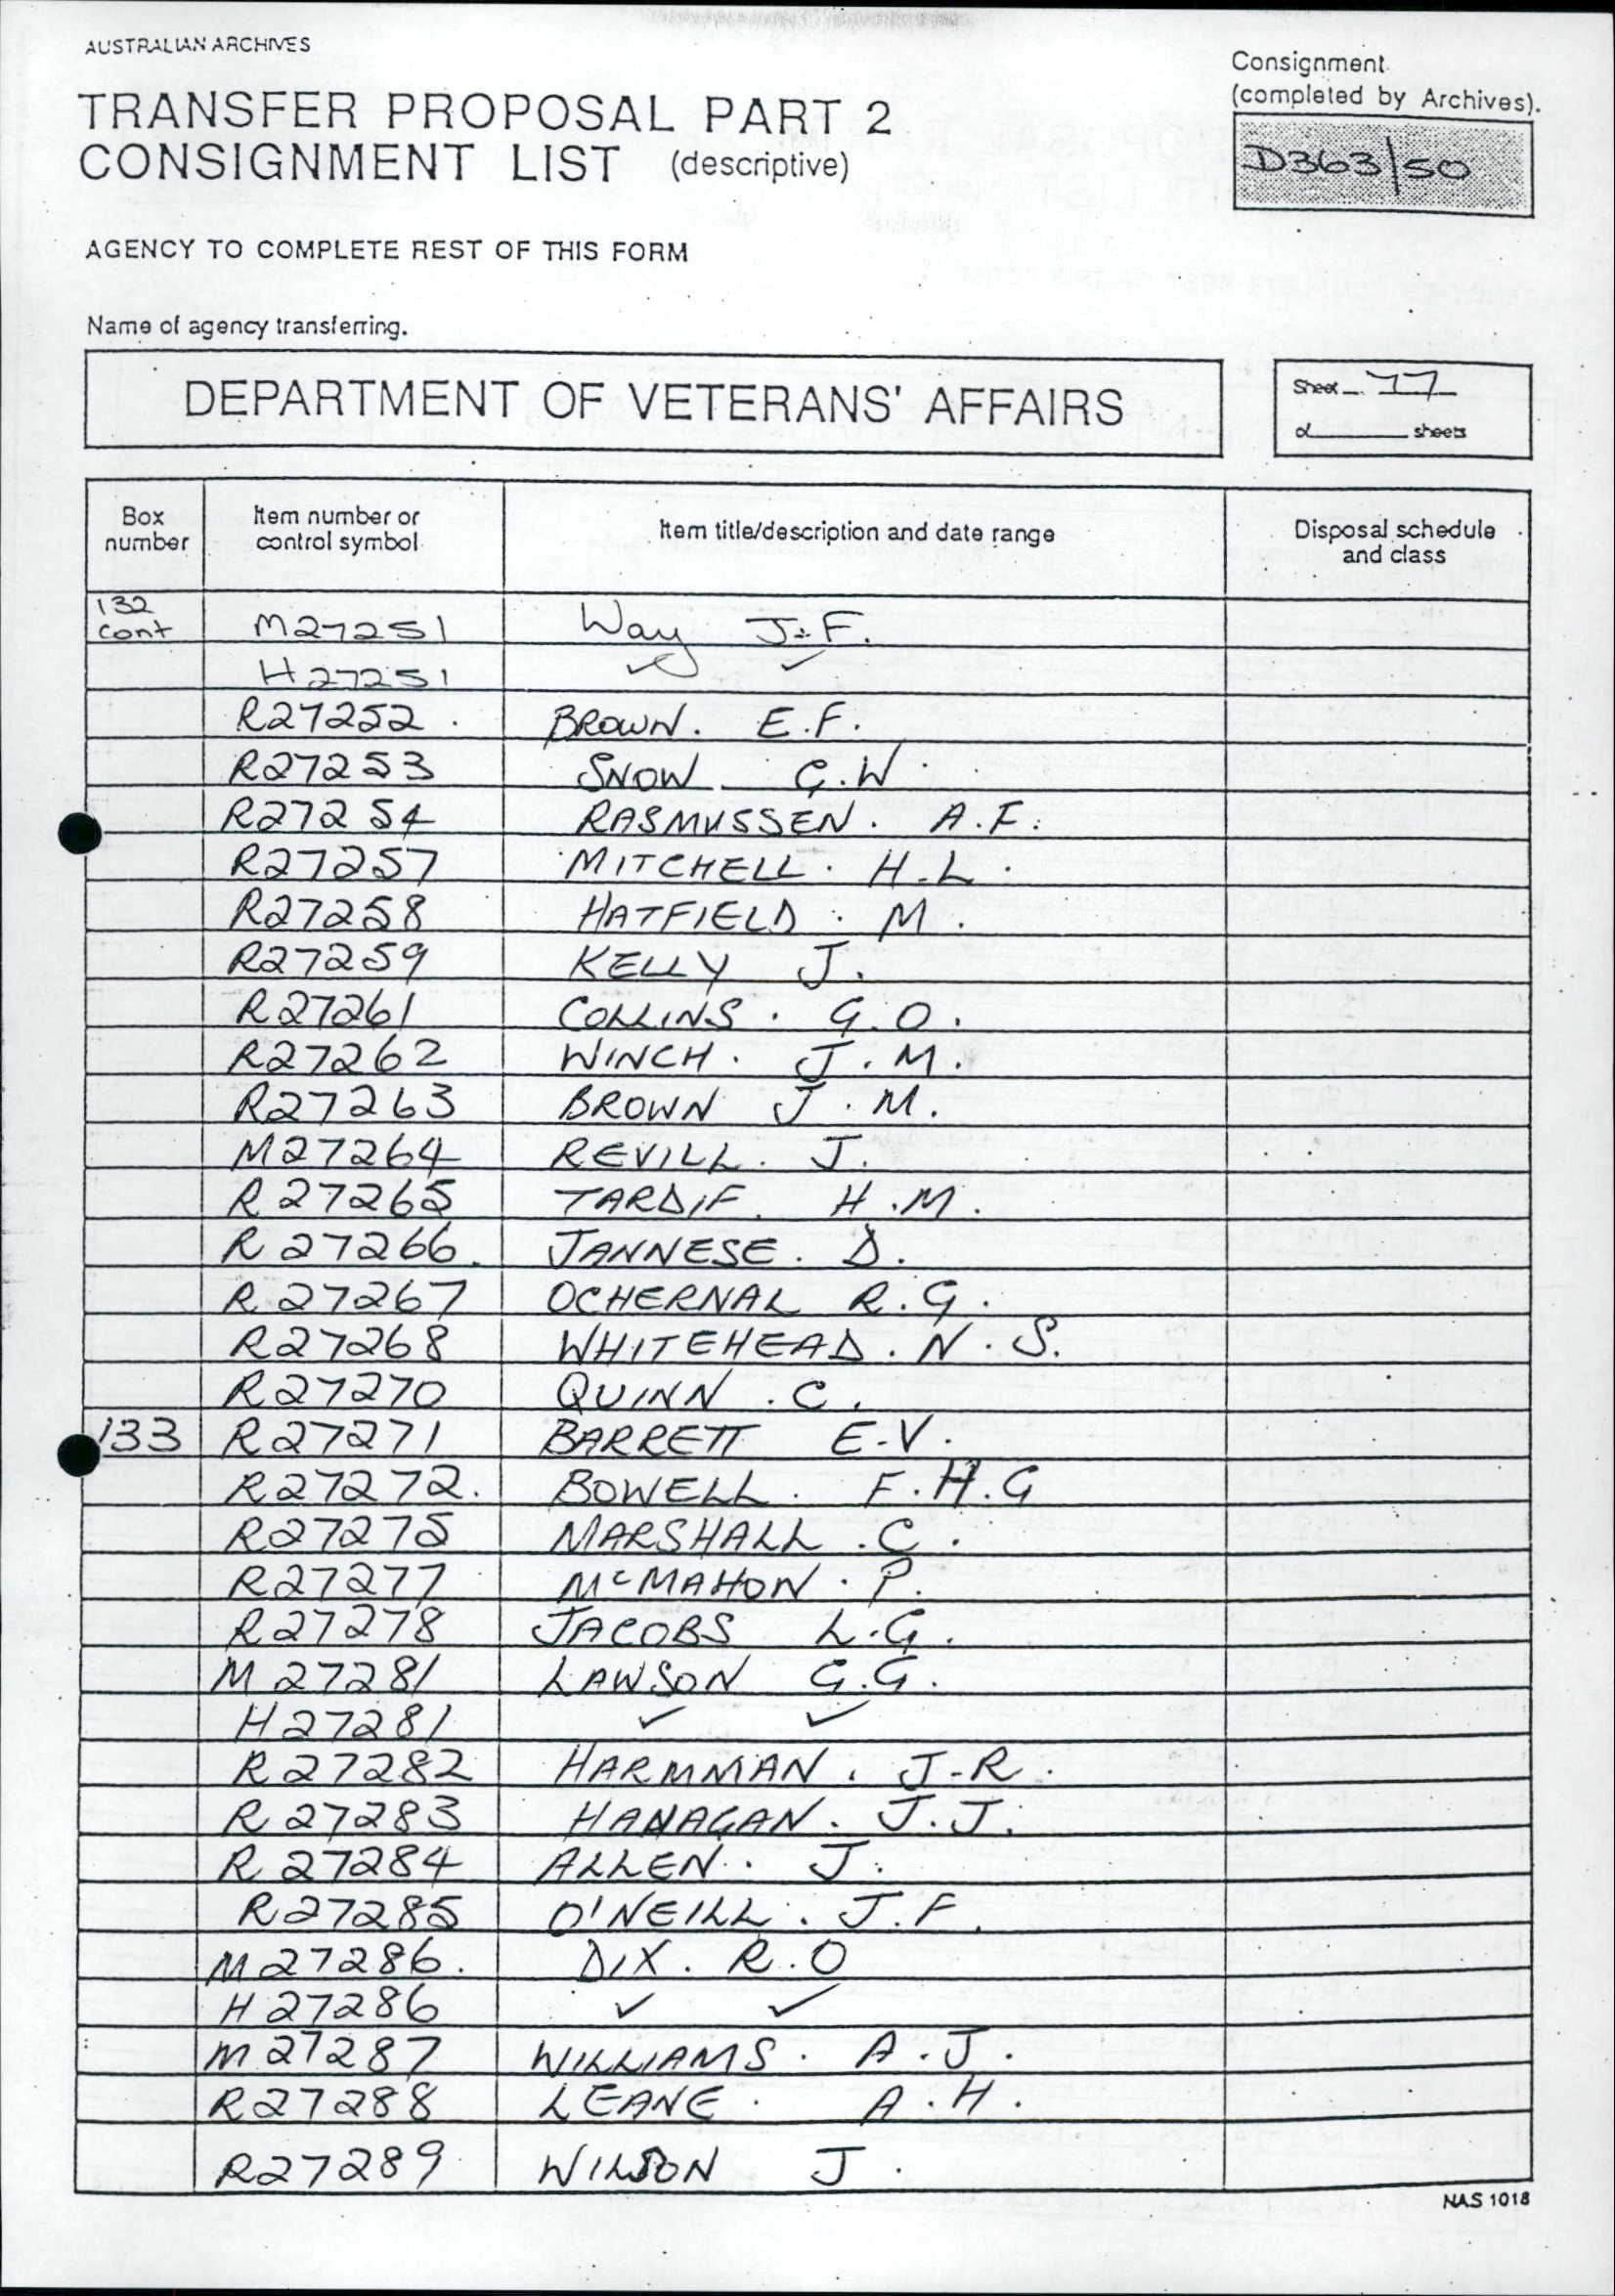 AUSTRALIAN ARCHIVES
TRANSFER PROPOSAL PART 2
CONSIGNMENT LIST (descriptive)
Consignment
(completed by Archives).
D363/50
AGENCY TO COMPLETE REST OF THIS FORM
Name of agency transferring.
DEPARTMENT OF VETERANS' AFFAIRS
Sheet 77
of sheets
Box number Item number or control symbol Item title/description and date range Disposal schedule and class
132 cont M27251 Way J.F.
H27251 ✓ ✓
R27252 BROWN. E.F.
R27253 SNOW G.W.
R27254 RASMUSSEN. A.F.
R27257 MITCHELL. H.L.
R27258 HATFIELD. M.
R27259 KELLY J.
R27261 COLLINS. G.O.
R27262 WINCH. J.M.
R27263 BROWN J.M.
M27264 REVILL. J.
R27265 TARDIF. H.M.
R27266. JANNESE. D.
R27267 OCHERNAL R.G.
R27268 WHITEHEAD. N.S.
R27270 QUINN. C.
133 R27271 BARRETT E.V.
R27272. BOWELL. F.H.G
R27275 MARSHALL. C.
R27277 McMAHON. P.
R27278 JACOBS L.G.
M27281 LAWSON G.G.
H27281 ✓ ✓
R27282 HARMMAN. J.R.
R27283 HANAGAN. J.J.
R27284 ALLEN. J.
R27285 O'NEILL. J.F.
M27286. DIX. R.O
H27286 ✓ ✓
M27287 WILLIAMS. A.J.
R27288 LEANE. A.H.
R27289 WILSON J.
NAS 1018